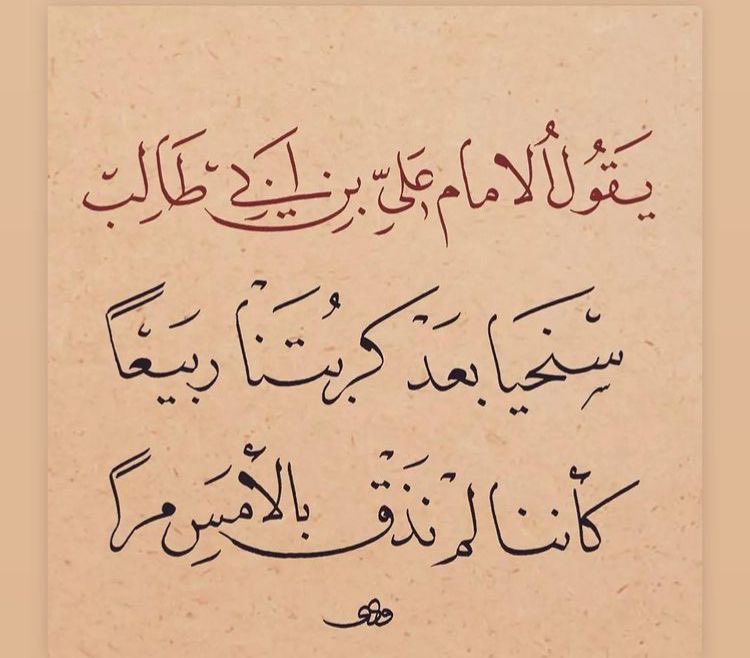 يَقُولُ الامام عَليِّ بن اَبَي طَالِب
سنحيا بعَد كُربتَنا ربيَعاً
كأننا لم نَذَق بالأمَسِ مراً